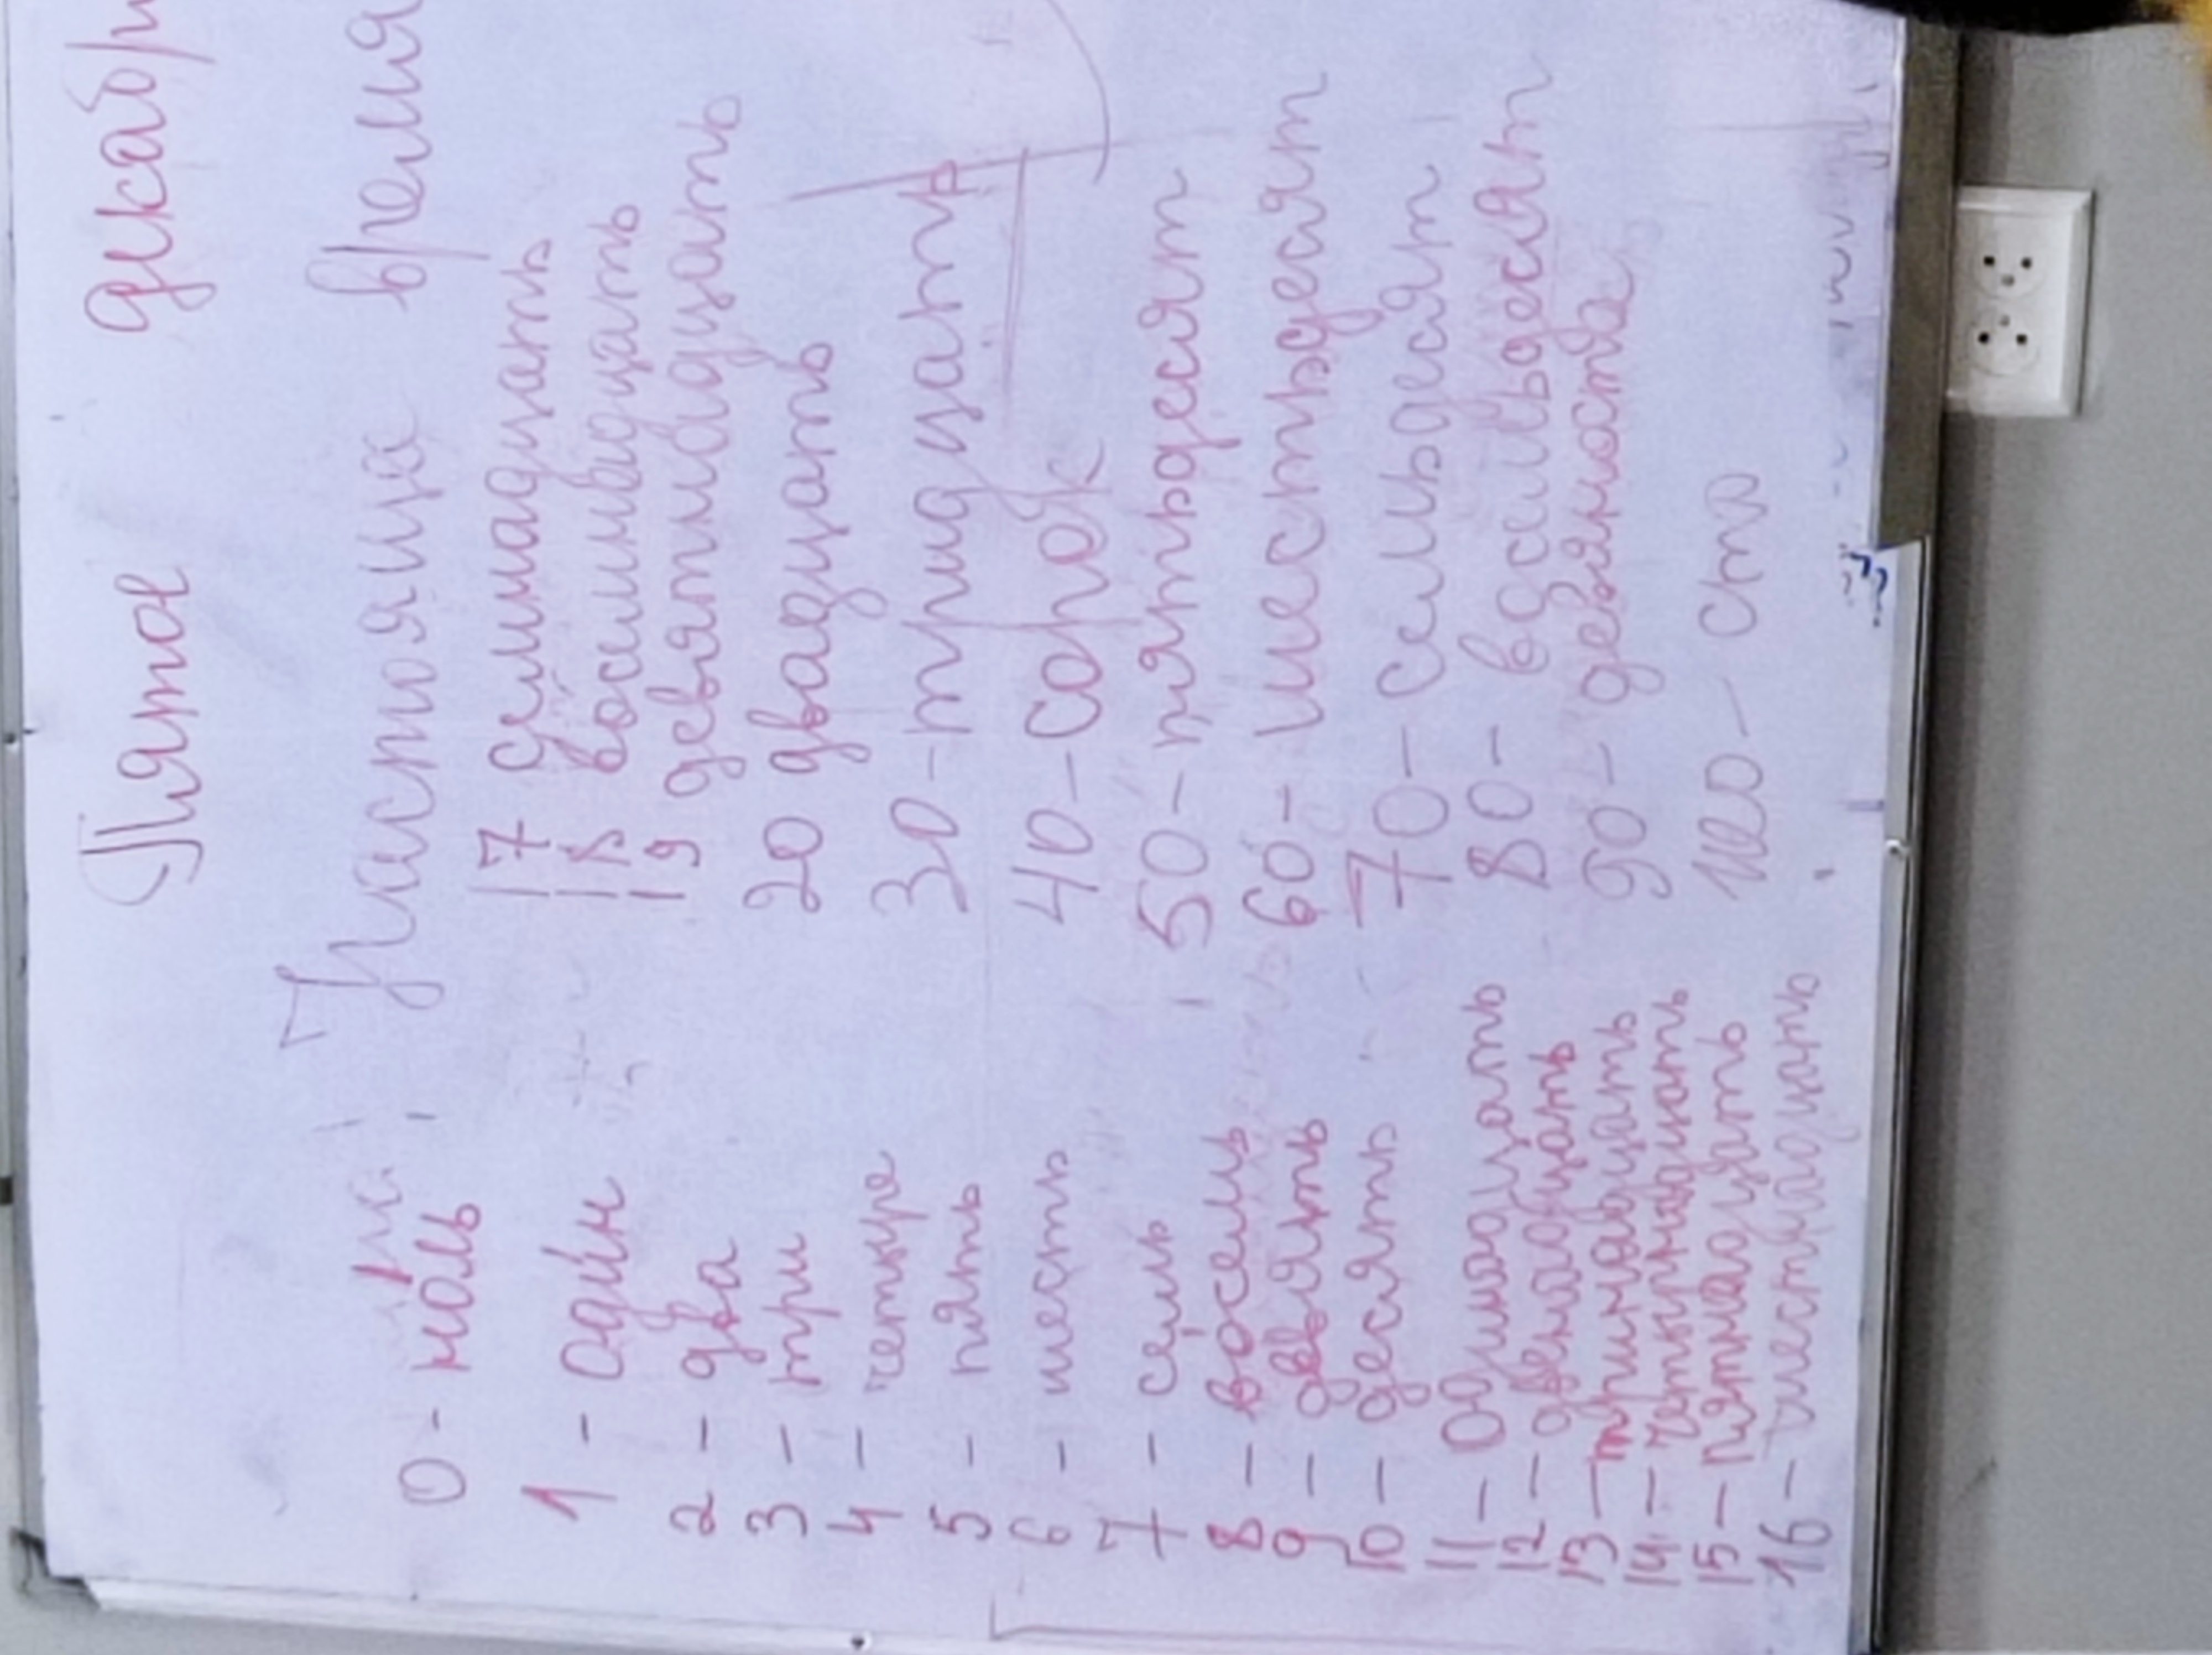 Пятое декабр
Настояща время
0 - ноль
1 - оди́н
2 - два
3 - три
4 - четыре
5 - пять
6 - шесть
7 - семь
8 - во́семь
9 - девять
10 - десять
11 - Одинадцать
12 - двенадцать
13 - тринадцать
14 - четырнадцать
15 - пятнадцать
16 - шестнадцать
17 семнадцать
18 восемнадцать
19 девятнадцать
20 двадцать
30 - тридцать
40 - сорок
50 - пятьдесят
60 - шестьдесят
70 - семьдесят
80 - восемьдесят
90 - девяноста
100 - сто